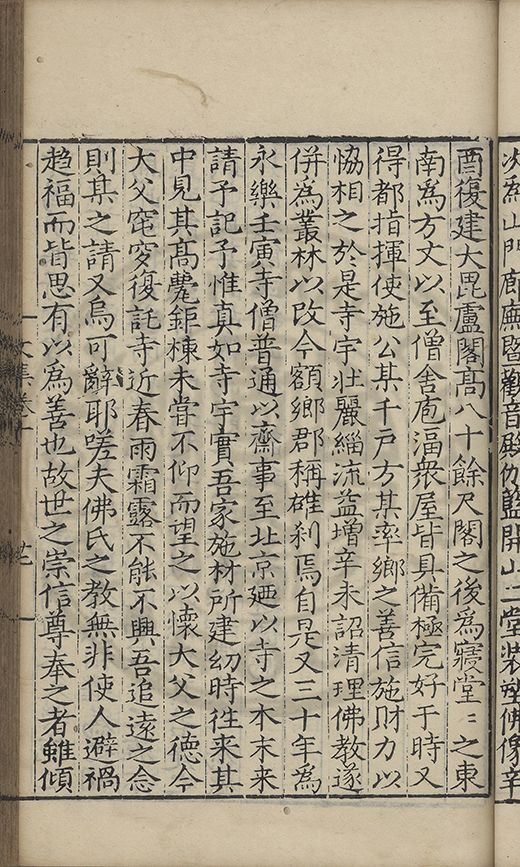 次為山門廊廡暨觀音殿伽藍開山二堂裝塑佛像辛
酉復建大毘盧閣高八十餘尺閣之後為寢堂〻之東
南為方丈以至僧舍庖湢衆屋皆具備極完好于時又
得都指揮使施公某千戶方某率鄉之善信施財力以
恊相之於是寺宇壯麗緇流益增辛未詔清理佛教遂
併為叢林以改今額鄉郡稱雄刹焉自是又三十年為
永樂壬寅寺僧普通以齋事至北京廼以寺之本末来
請予記予惟真如寺宇實吾家施材所建㓜時往来其
中見其高甍鉅棟未嘗不仰而望之以懷大父之德今
大父窀穸復託寺近春雨霜露不能不興吾追遠之念
則某之請又烏可辭耶嗟夫佛氏之教無非使人避禍
趋福而皆思有以為善也故世之崇信尊奉之者雖傾
文集卷十
廿